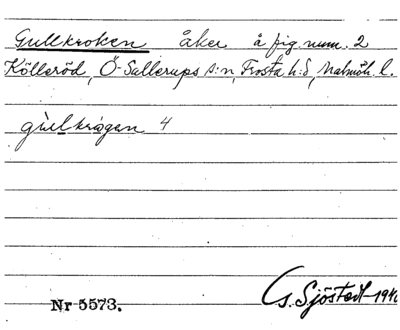 Gullkroken åker å fig. num. 2
Kölleröd, Ö-Sallerups s:n, Frosta h:d, Malmöh. l.
gulkrågen 4
Nr 5573.
G. Sjöstedt-1940